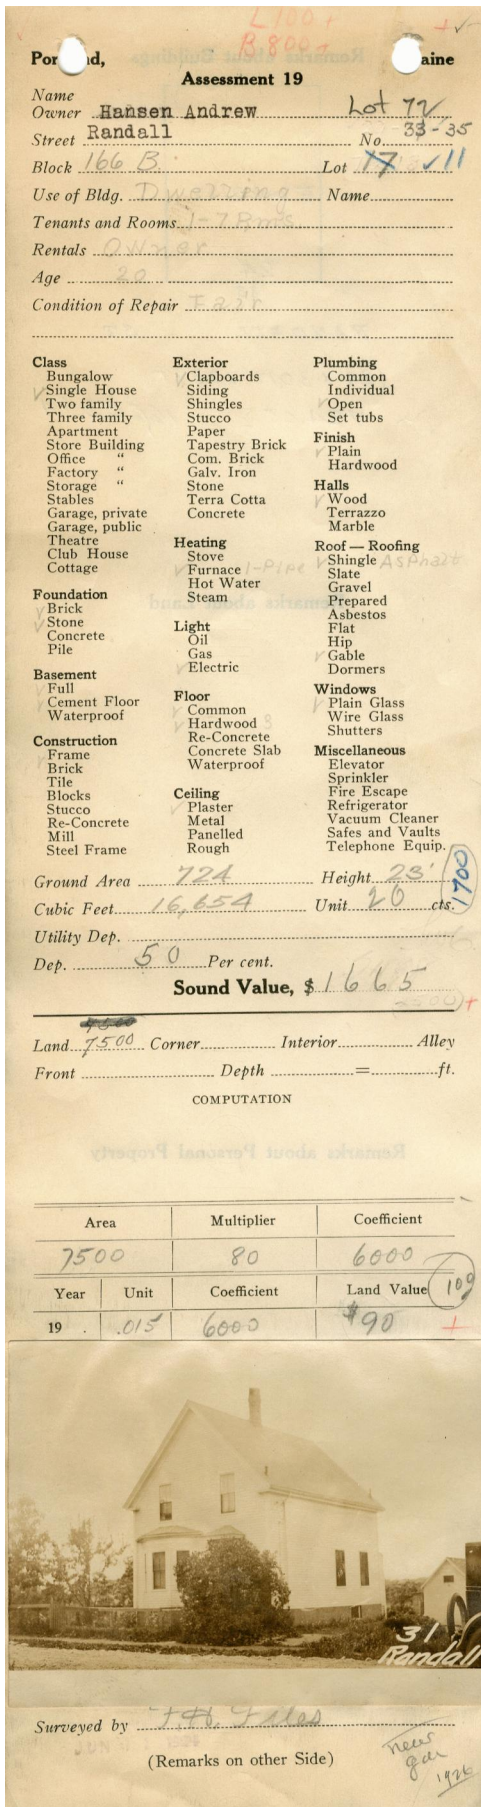 L 100 +
B 800 +
+ ✓
Por and, aine
Assessment 19
Name
Owner Hansen Andrew Lot 72
Street Randall No. 33-35
Block 166 B. Lot 17 ✓ 11
Use of Bldg. Dwelling Name
Tenants and Rooms 1-7 Rms.
Rentals Owner
Age 20
Condition of Repair Fair
Class
Bungalow
✓ Single House
Two family
Three family
Apartment
Store Building
Office "
Factory "
Storage "
Stables
Garage, private
Garage, public
Theatre
Club House
Cottage
Foundation
✓ Brick
✓ Stone
Concrete
Pile
Basement
✓ Full
✓ Cement Floor
Waterproof
Construction
✓ Frame
Brick
Tile
Blocks
Stucco
Re-Concrete
Mill
Steel Frame
Exterior
✓ Clapboards
Siding
Shingles
Stucco
Paper
Tapestry Brick
Com. Brick
Galv. Iron
Stone
Terra Cotta
Concrete
Heating
Stove
✓ Furnace 1-Pipe
Hot Water
Steam
Light
Oil
Gas
✓ Electric
Floor
✓ Common
✓ Hardwood 3
Re-Concrete
Concrete Slab
Waterproof
Ceiling
✓ Plaster
Metal
Panelled
Rough
Plumbing
Common
Individual
✓ Open
Set tubs
Finish
✓ Plain
Hardwood
Halls
✓ Wood
Terrazzo
Marble
Roof — Roofing
✓ Shingle Asphalt
Slate
Gravel
Prepared
Asbestos
Flat
Hip
✓ Gable
Dormers
Windows
✓ Plain Glass
Wire Glass
Shutters
Miscellaneous
Elevator
Sprinkler
Fire Escape
Refrigerator
Vacuum Cleaner
Safes and Vaults
Telephone Equip.
Ground Area 724 Height 23'
Cubic Feet 16,654 Unit 20 cts. 1700
Utility Dep.
Dep. 50 Per cent.
Sound Value, $ 1665
+
Land 7500 Corner Interior Alley
Front Depth = ft.
COMPUTATION
Area Multiplier Coefficient
7500 80 6000
Year Unit Coefficient Land Value 100
19 . .015 6000 $90 +
31
Randall
Surveyed by F. H. Files
JUN
(Remarks on other Side)
new
gar
1926